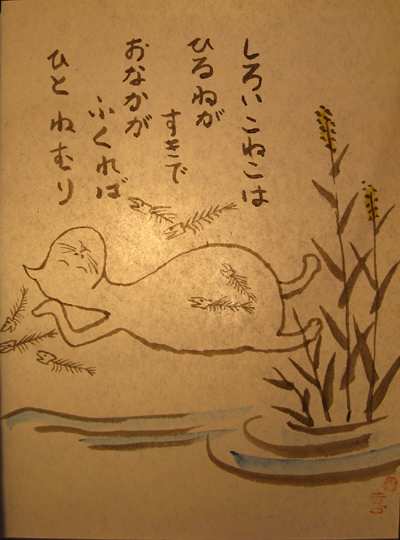 しろいこねこは
ひるねが
すきで
おなかが
ふくれば
ひとねむり